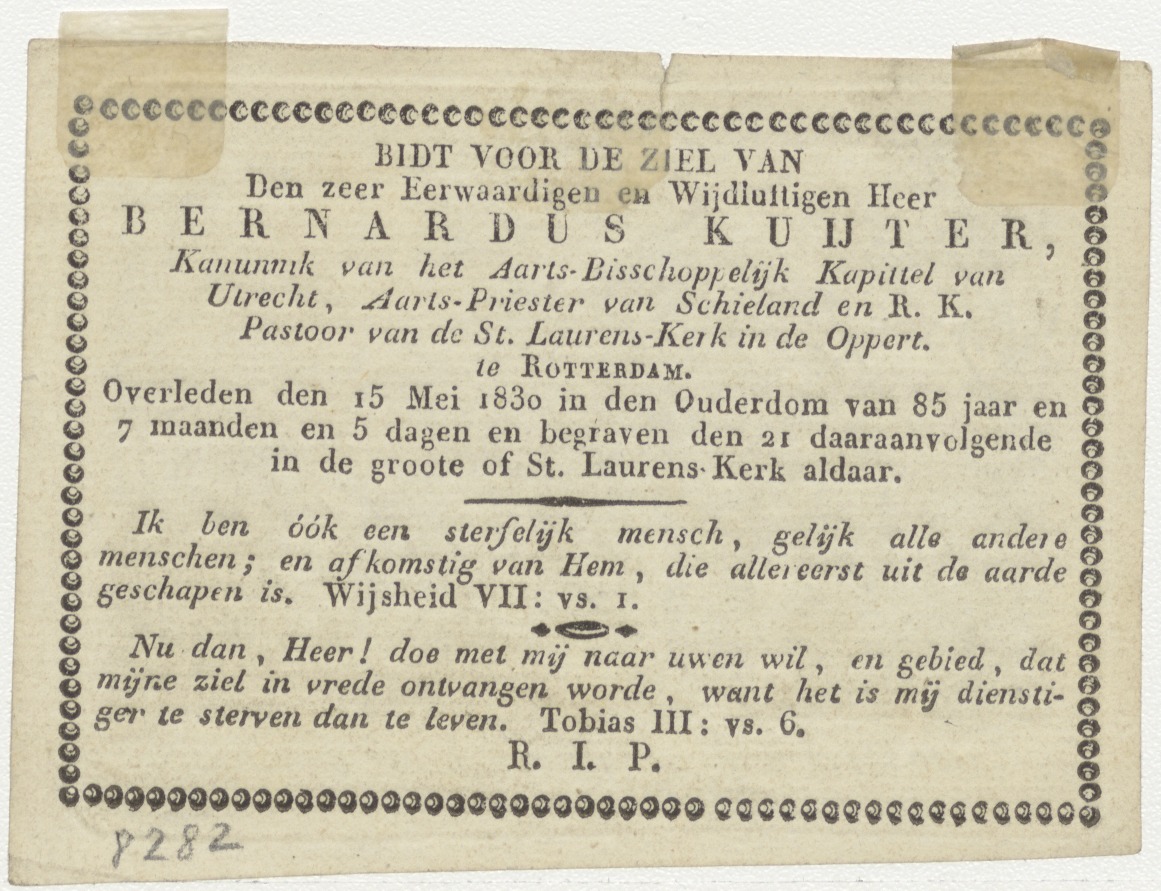 BIDT VOOR DE ZIEL VAN
Den zeer Eerwaardigen en Wijdluftigen Heer
BERNARDUS KUIJTER,
Kanunnik van het Aarts-Bisschoppelijk Kapittel van
Utrecht, Aarts-Priester van Schieland en R. K.
Pastoor van de St. Laurens-Kerk in de Oppert.
te ROTTERDAM.
Overleden den 15 Mei 1830 in den Ouderdom van 85 jaar en
7 maanden en 5 dagen en begraven den 21 daaraanvolgende
in de groote of St. Laurens-Kerk aldaar.
Ik ben óók een sterfelijk mensch, gelijk alle andere
menschen; en afkomstig van Hem, die allereerst uit de aarde
geschapen is. Wijsheid VII: vs. 1.
Nu dan, Heer! doe met mij naar uwen wil, en gebied, dat
mijne ziel in vrede ontvangen worde, want het is mij diensti-
ger te sterven dan te leven. Tobias III: vs. 6.
R. I. P.
8282